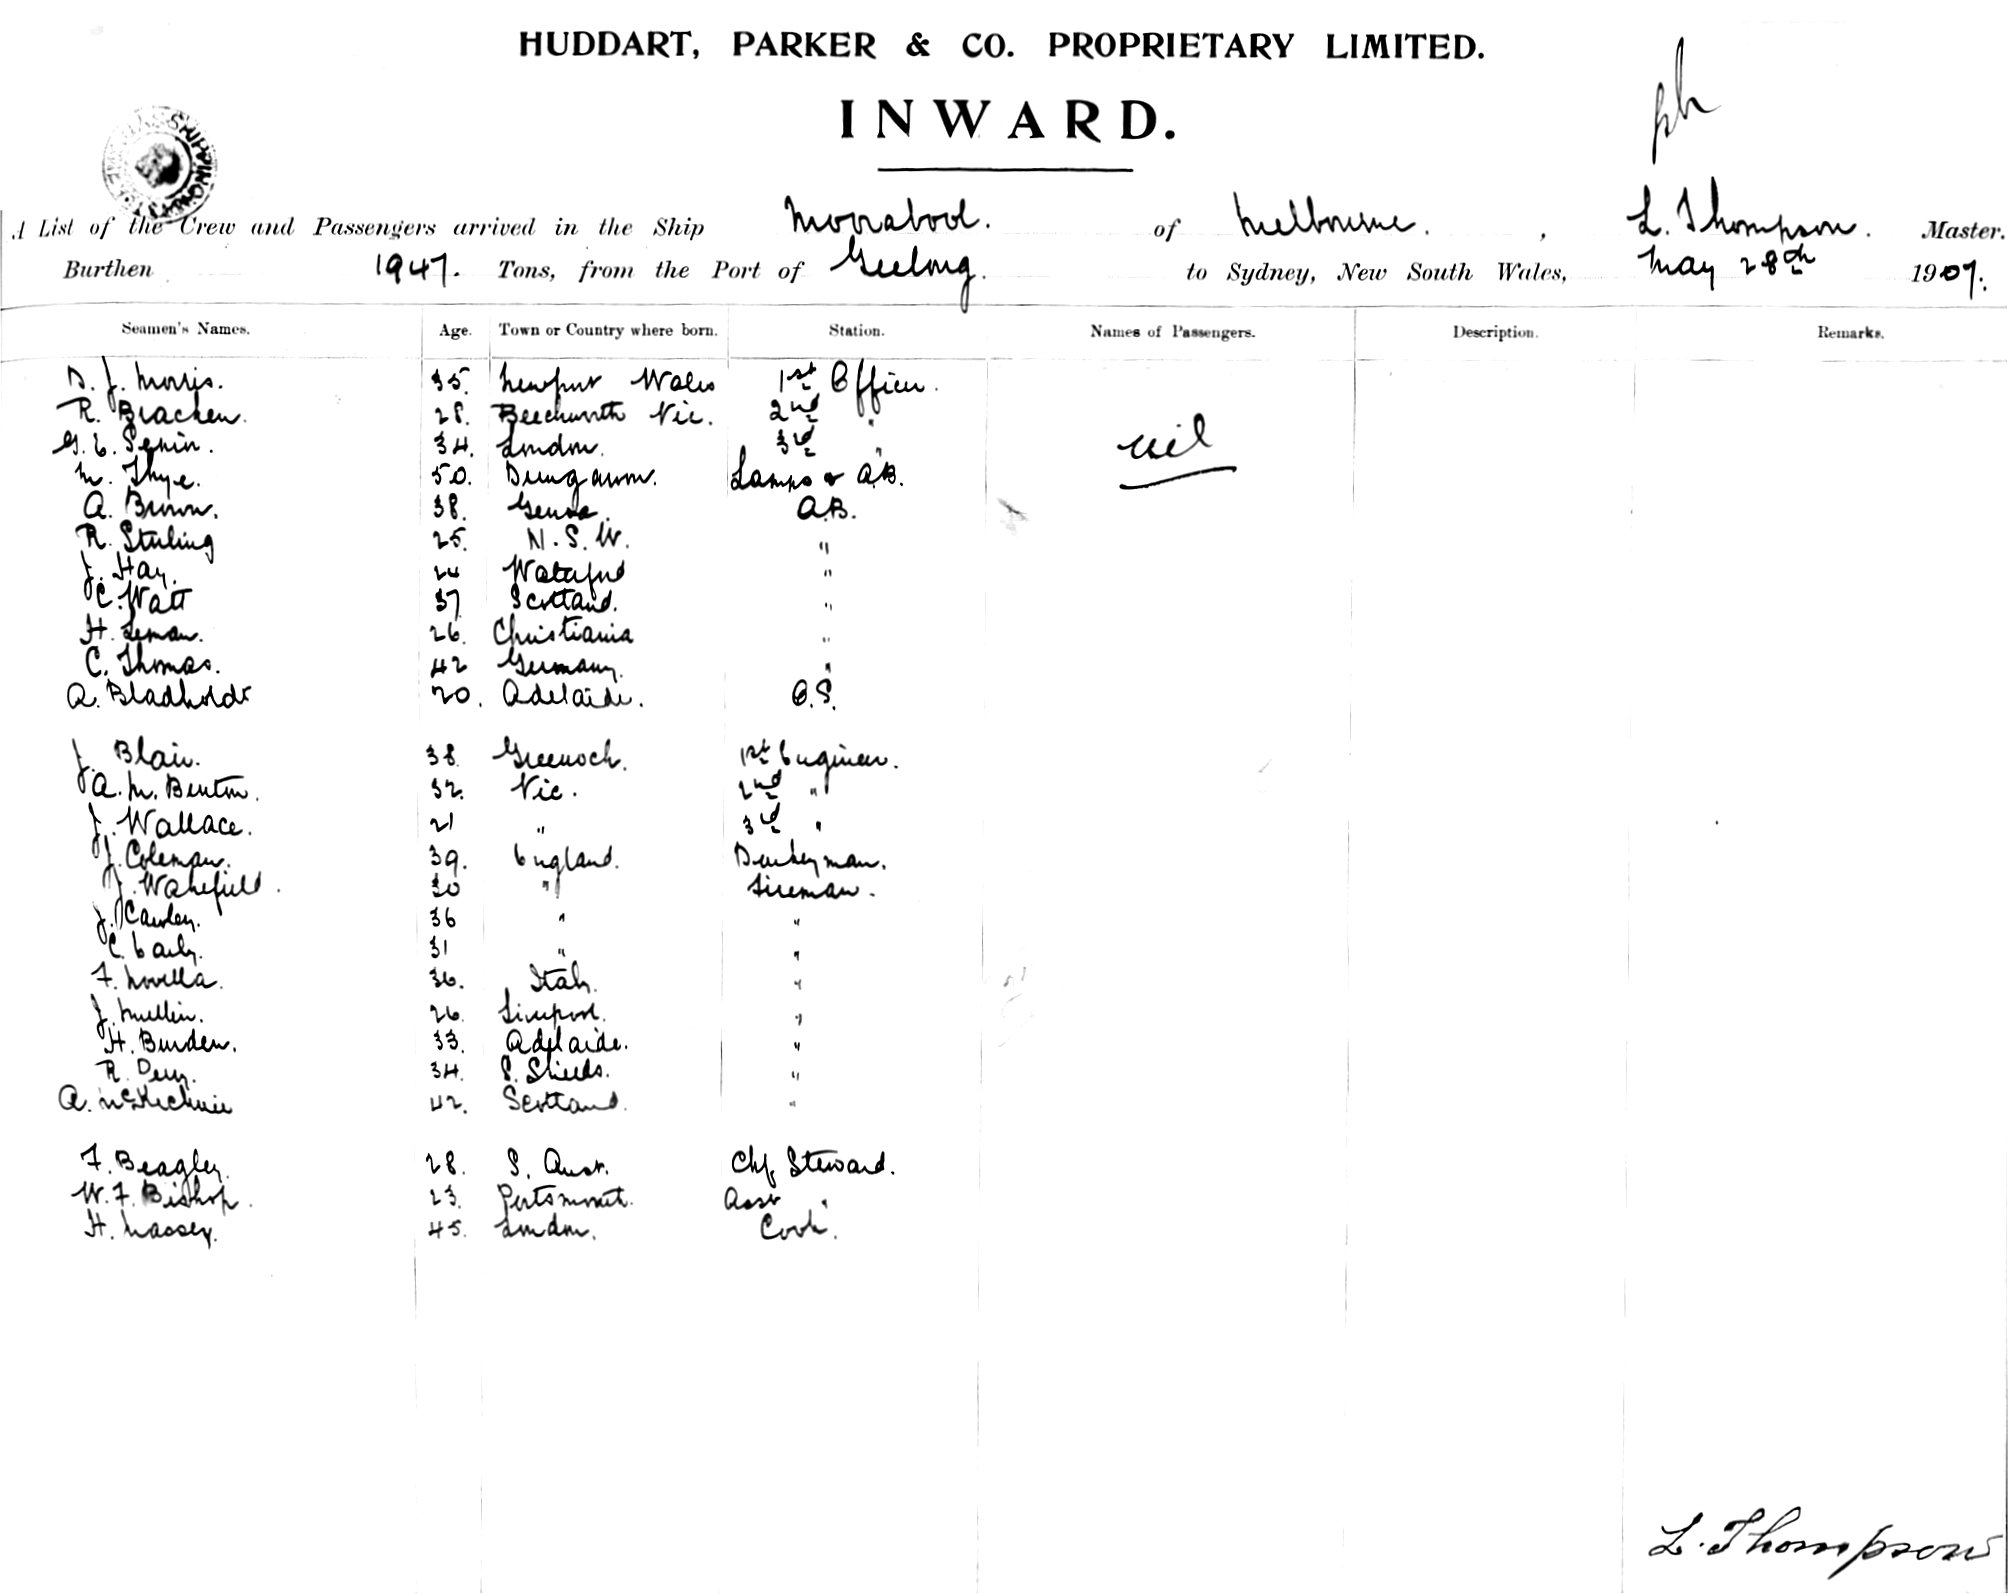 HUDDART, PARKER & CO. PROPRIETARY LIMITED.
INWARD.
A List of the Crew and Passengers arrived in the Ship Moorabool. of Melbourne. , L. Thompson. Master.
Burthen 1947. Tons, from the Port of Geelong. to Sydney, New South Wales, May 28th 1907.
Seamen's Names. Age. Town or Country where born. Station. Names of Passengers. Description. Remarks.
D. J. Morris. 35. Newport Wales 1st Officer.
R. Bracken. 28. Beechworth Vic. 2nd "
G. E. 34. London. 3rd "
nil
M. Thye. 50. Dungavon. Lamps & A.B.
A. Brown. 38. Genoa. A.B.
R. Stirling 25. N.S.W. "
J. Hay. 24 Waterford "
C. Watt 37 Scotland. "
H. Leman. 26. Christiania "
C. Thomas. 42 Germany. "
A. Bladholdt 20. Adelaide. O.S.
J. Blair. 38. Greenock. 1st Engineer.
A. M. Benton. 32. Vic. 2nd "
J. Wallace. 21 " 3rd "
J. Coleman. 39. England. Donkeyman.
J. Wakefield. 30 " Fireman.
J. Cawley. 36 " "
C. Early. 31 " "
F. Novella. 36. Italy. "
J. Mullin. 26. Liverpool. "
H. Burden. 33. Adelaide. "
R. 34. S. Shields. "
A. McKechnie 42. Scotland. "
F. Beagley. 28. S. Aust. Chf Steward.
W. F. Bishop. 23. Portsmouth. Asst "
H. Massey. 45. London. Cook.
L. Thompson